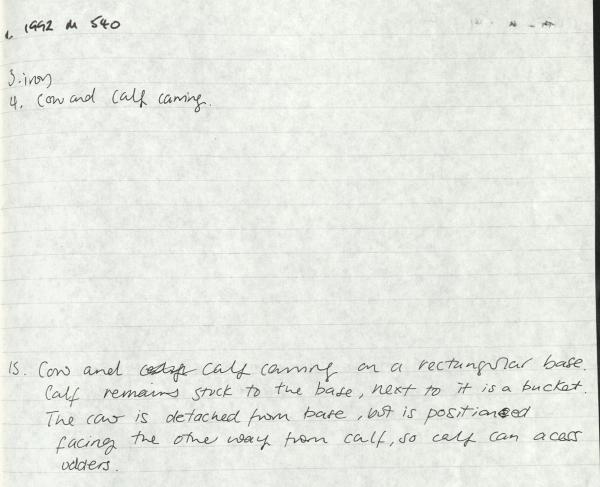 1992 M 540
3. iron
4. Cow and calf carving.
15. Cow and calf carving on a rectangular base.
Calf remains stuck to the base, next to it is a bucket.
The cow is detached from base, but is positioned
facing the othe way from calf, so calf can acess
udders.